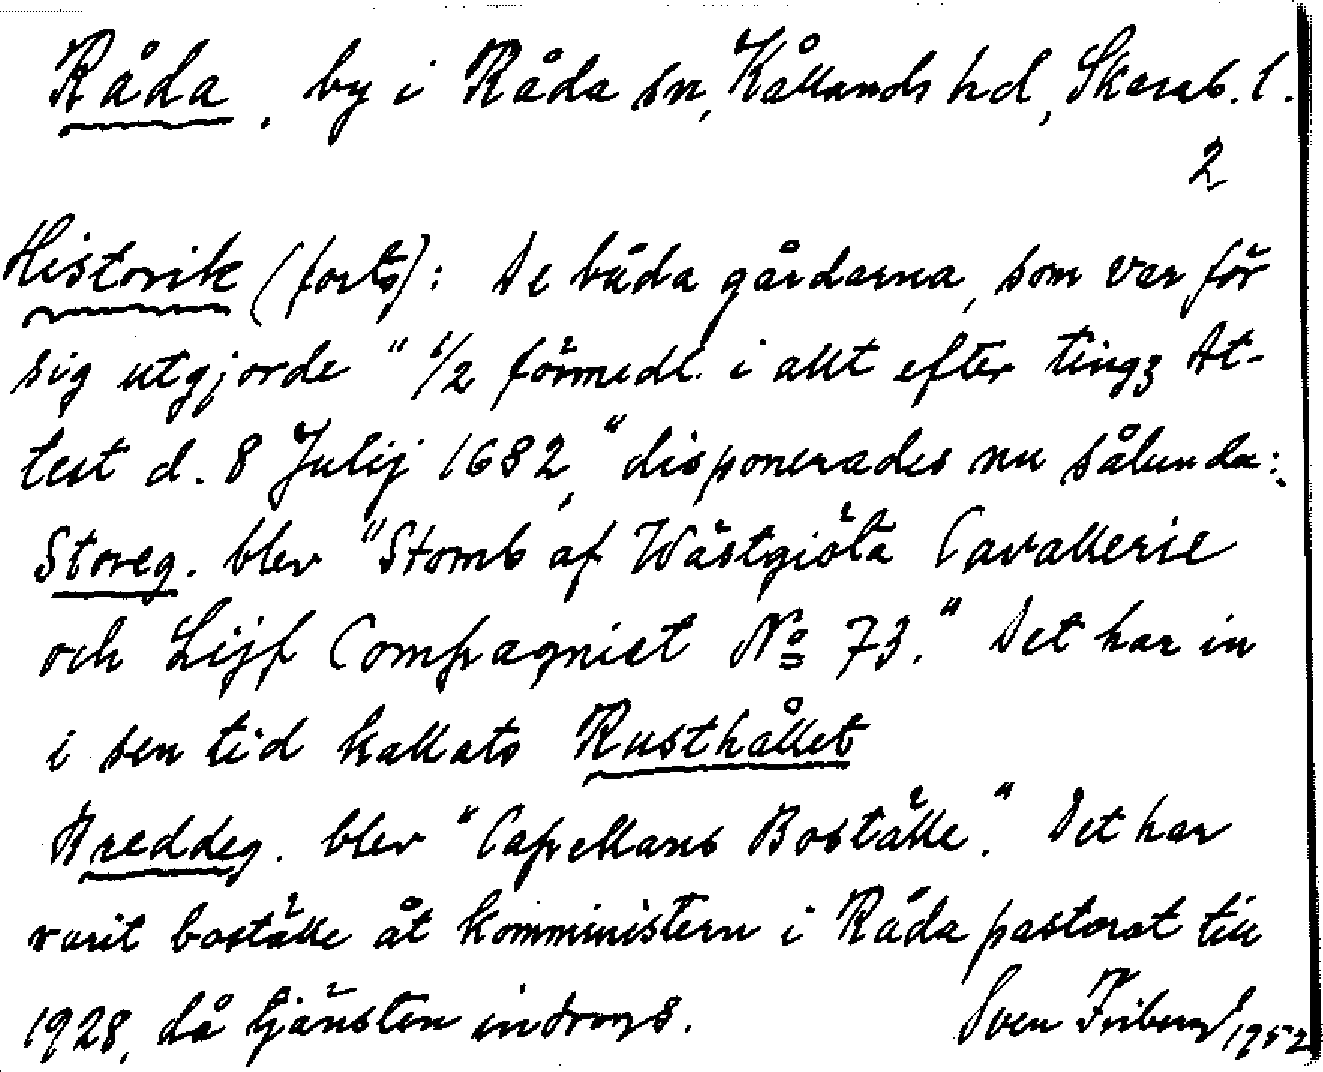 Råda, by i Råda sn, Kållands hd, Skarab. l.
2
Historik (forts): De båda gårdarna, som var för
sig utgjorde "1/2 förmedl. i allt efter tingz At-
test d. 8 Julij 1682," disponerades nu sålunda:
Storeg. blev "Stomb af Wästgiöta Cavallerie
och Lijf Compagniet No 73." Det har in
i sen tid kallats Rusthållet
Breddeg. blev "Capellans Boställe." Det har
varit boställe åt komministern i Råda pastorat till
1928, då tjänsten indrogs.
Sven Friberg 1952